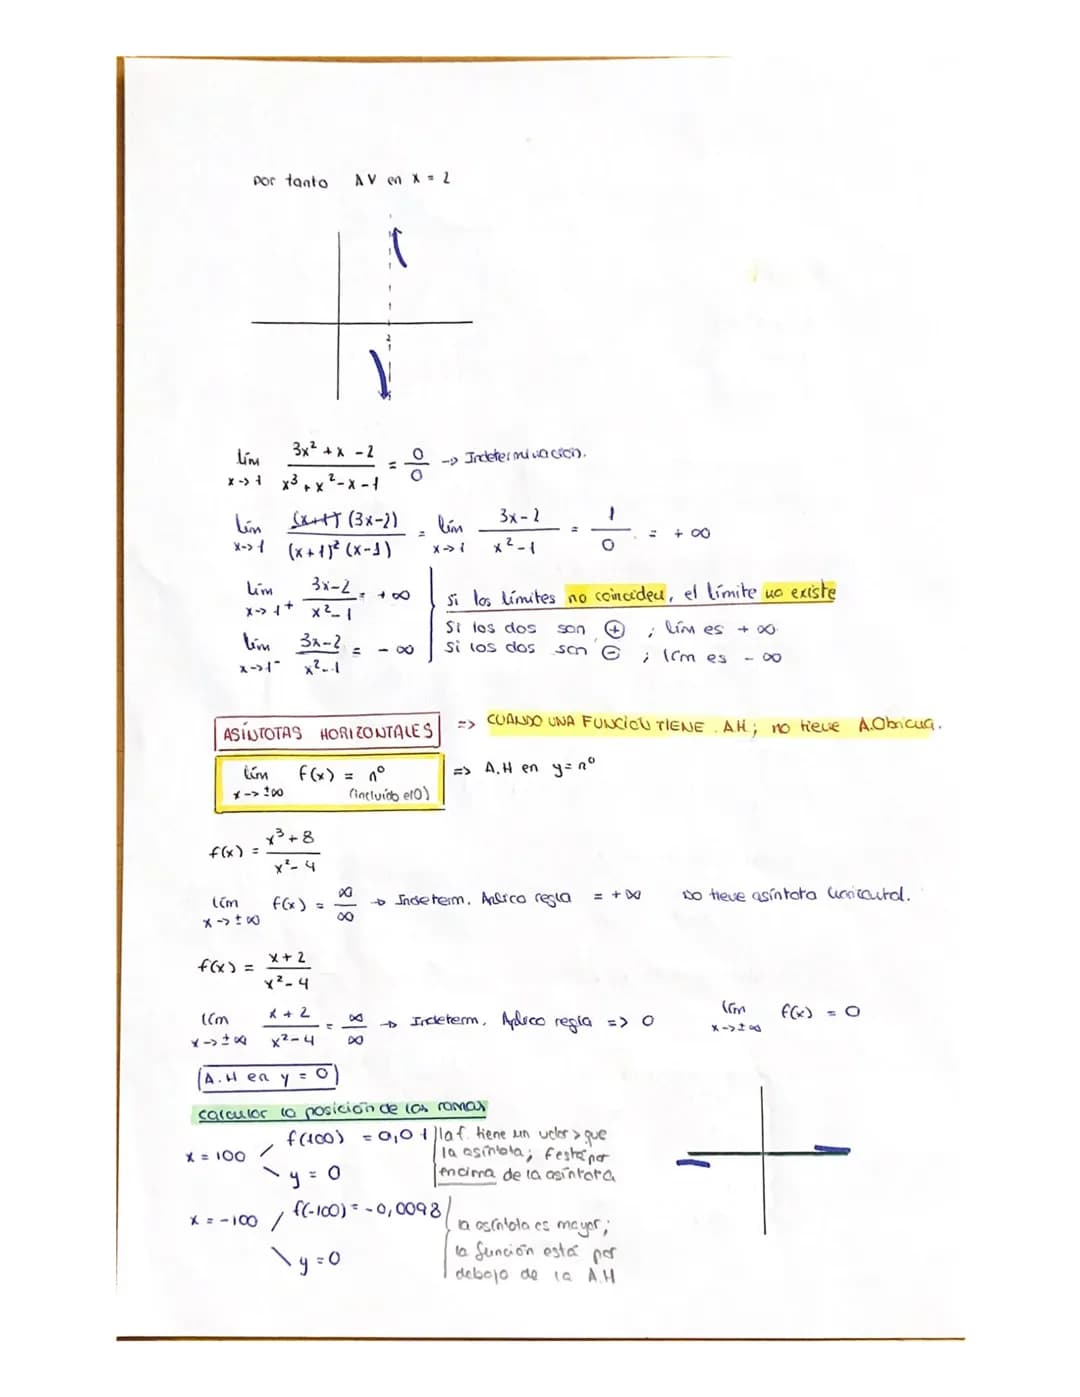 por tanto AV en x = 2
2
lím x->1 3x² + x - 2 / x³ + x² - x - 1 = 0/0 -> Indeterminación.
lím x->1 (x+1) (3x-2) / (x+1)² (x-1) = lím x->1 3x-2 / x²-1 = 1/0 = + ∞
lím x->1⁺ 3x-2 / x²-1 = + ∞
lím x->1⁻ 3x-2 / x²-1 = - ∞
si los límites no coinciden, el límite no existe
Si los dos son ⊕ ; lím es + ∞
Si los dos son ⊖ ; lím es - ∞
ASÍNTOTAS HORIZONTALES => CUANDO UNA FUNCIÓN TIENE A.H; no tiene A.Oblicua.
lím x->±∞ f(x) = nº (incluido el 0) => A.H en y = nº
f(x) = x³+8 / x²-4
lím x->±∞ f(x) = ∞/∞ -> Indeterm. Aplico regla = +∞ No tiene asíntota horizontal.
f(x) = x+2 / x²-4
lím x->±∞ x+2 / x²-4 = ∞/∞ -> Indeterm. Aplico regla => 0 lím x->±∞ f(x) = 0
A.H en y = 0
calcular la posición de las ramas
x = 100 / f(100) = 0,01 \ y = 0
la f. tiene un valor > que
la asíntota; f está por
encima de la asíntota
x = -100 / f(-100) = -0,0098 \ y = 0
la asíntota es mayor;
la función está por
debajo de la A.H